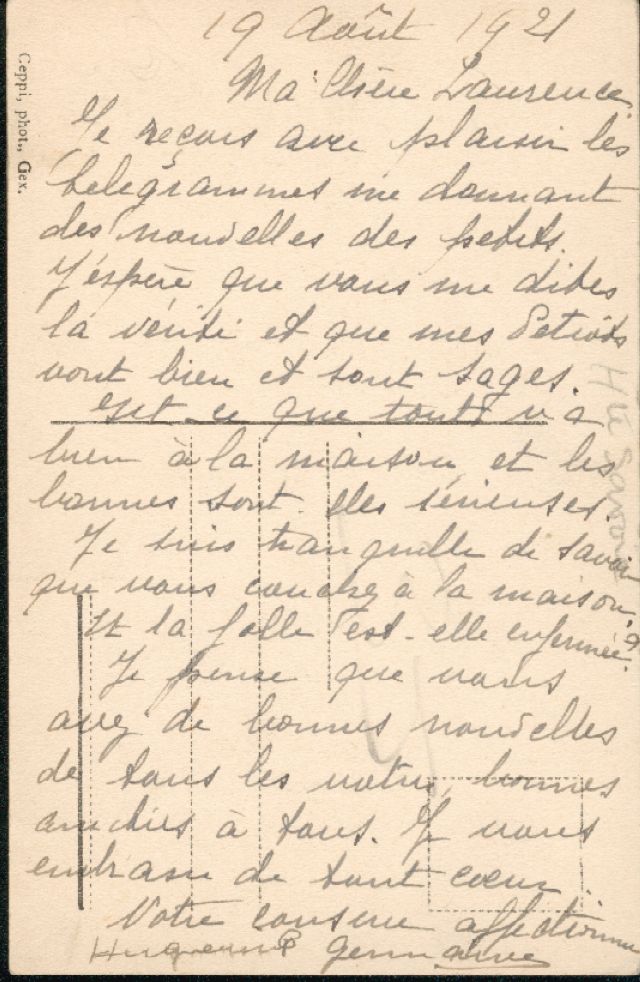 19 Août 1921
Ma Chère Laurence.
Je reçois avec plaisir les
télégrammes me donnant
des nouvelles des petits.
J'espère que vous me dites
la vérité et que mes Petiots
vont bien et sont sages.
Est-ce que tout va
bien à la maison et les
bonnes sont-elles sérieuses.
Je suis tranquille de savoir
que vous couchez à la maison.
Et la folle est-elle enfermée?
Je pense que vous
avez de bonnes nouvelles
de tous les vôtres, bonnes
amitiés à tous. Je vous
embrasse de tout cœur
Votre cousine affectionnée
Germaine
Ceppi, phot., Gex.